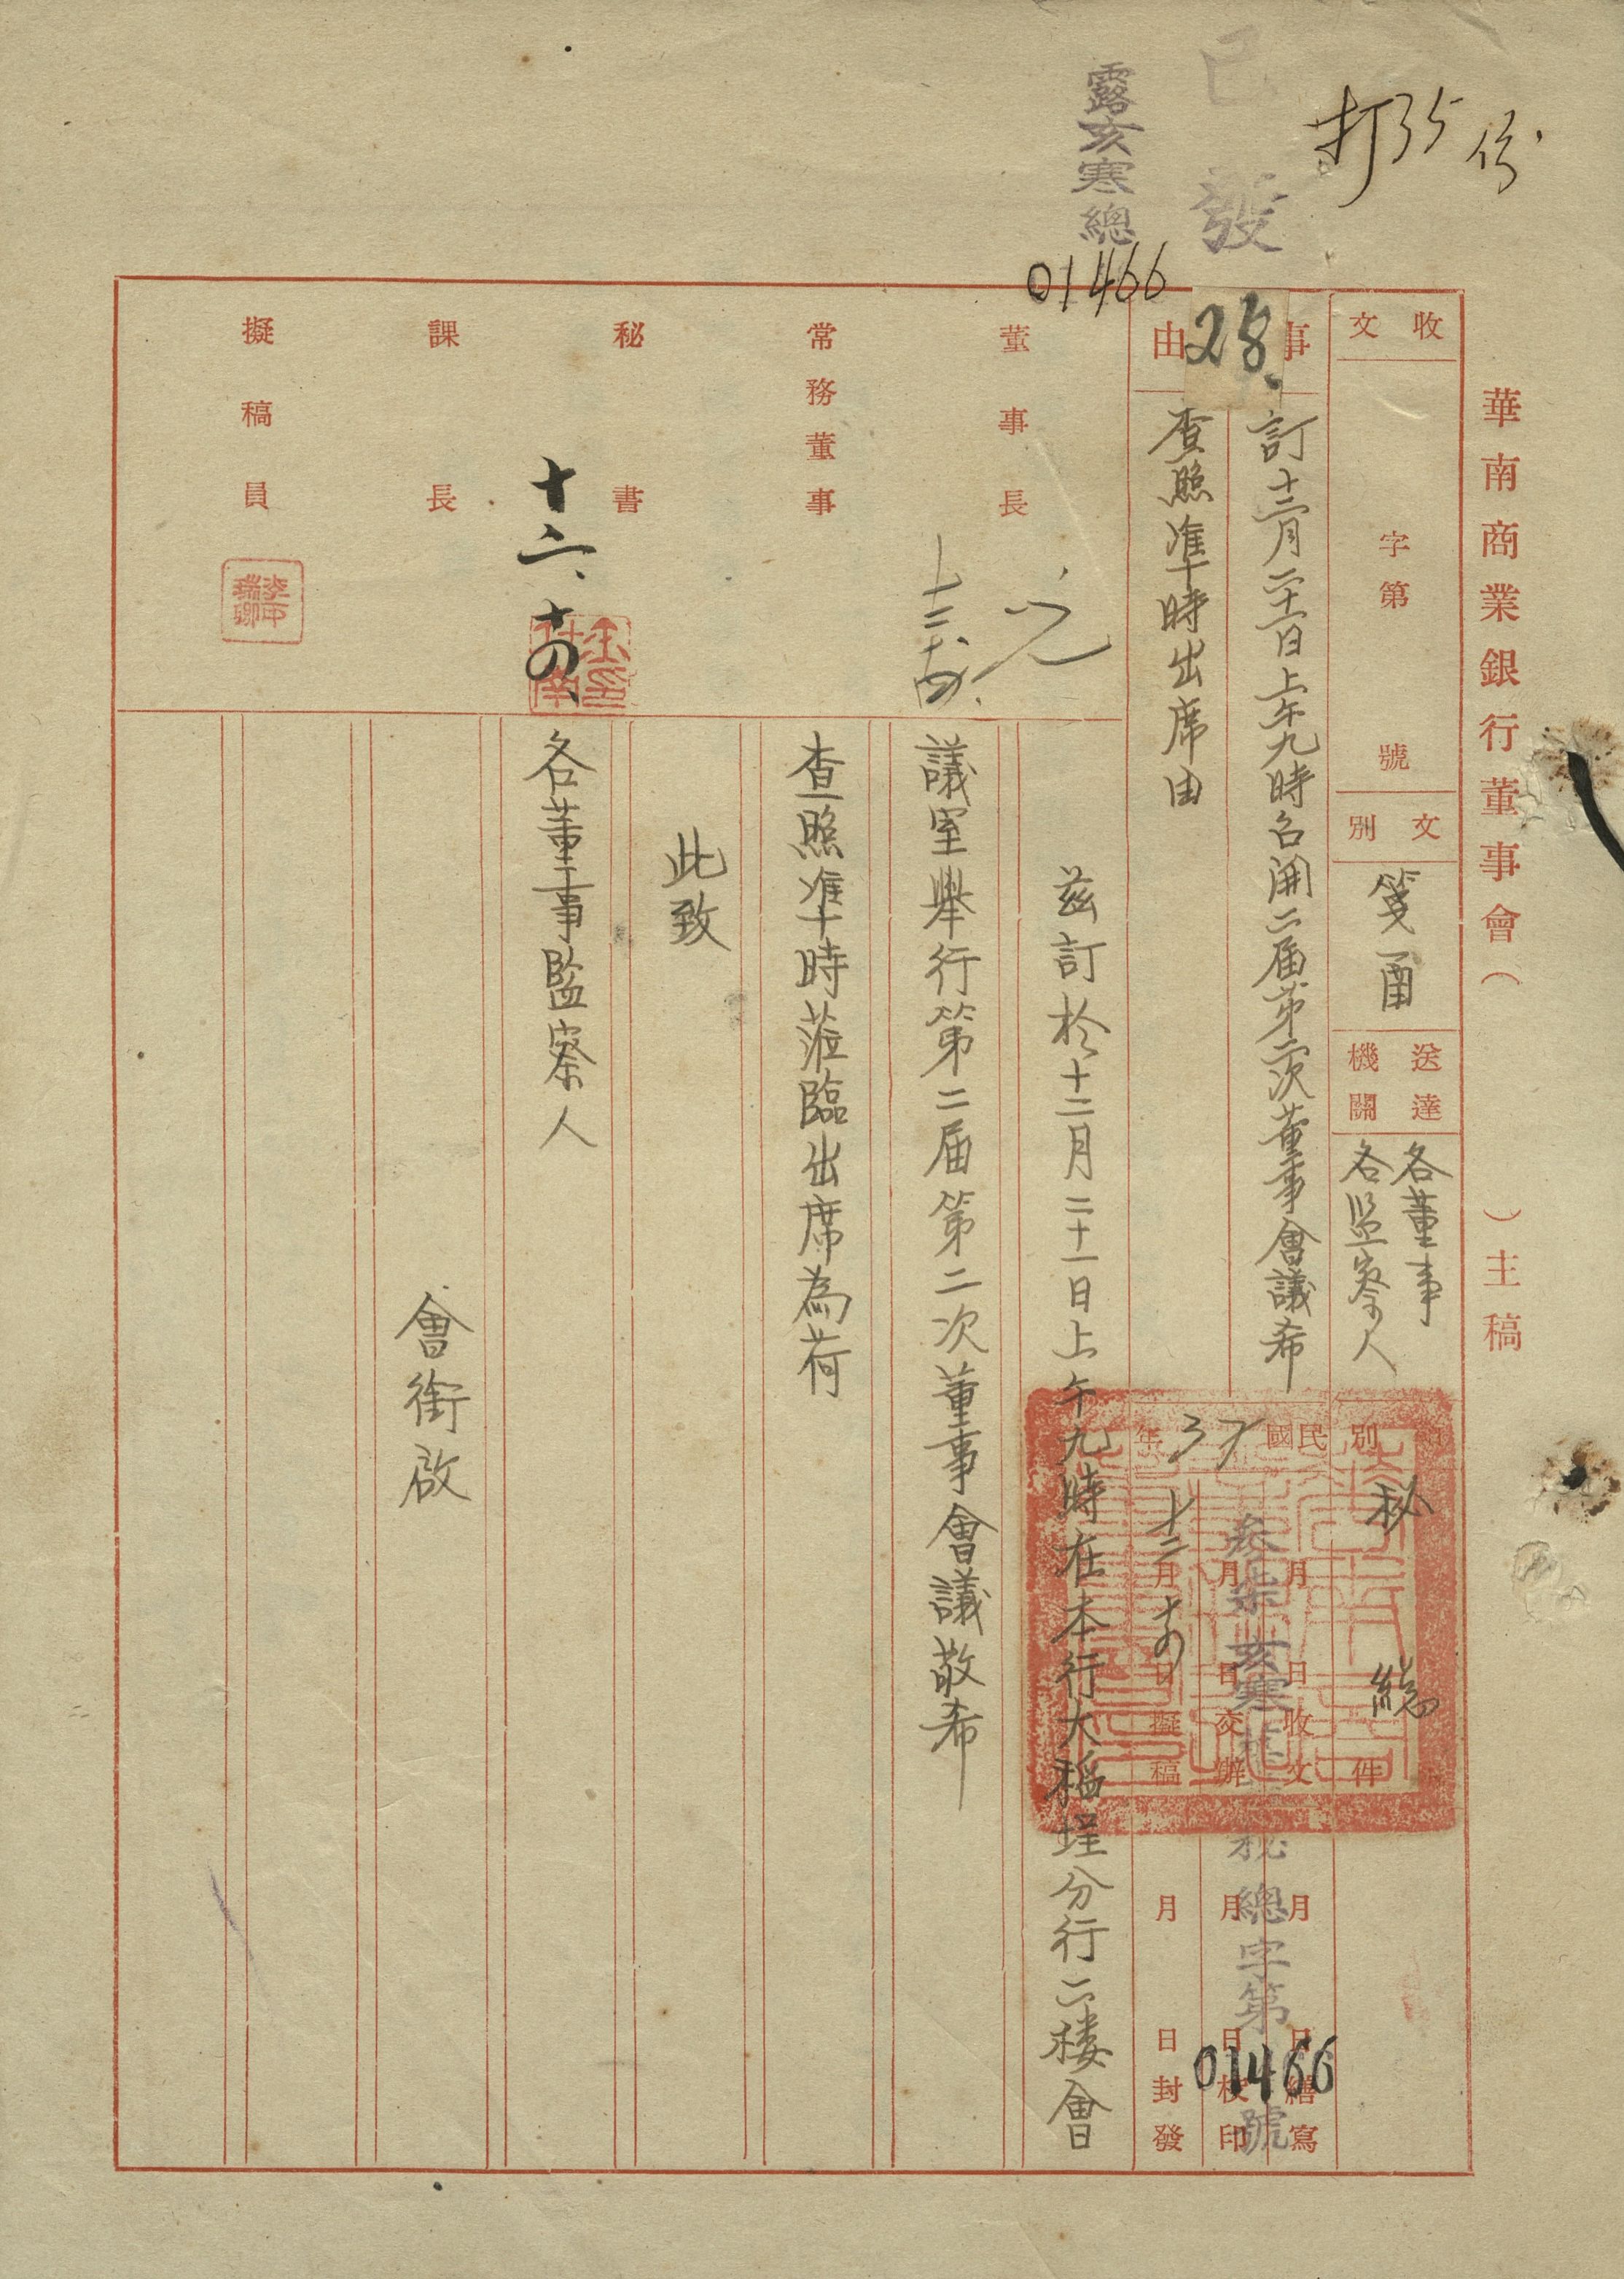 打35份
已發
露亥寒總
01466
28.
華南商業銀行董事會（　　）主稿
收文　字第　號
文別　箋函
送達機關　各董事
各監察人
別　秘　總　件
事由　訂十二月二十一日上午九時召開二屆第二次董事會議希
查照準時出席由
民國37年
月　日收文
月　日交辦
十二月十四日擬稿
月　日繕寫
月　日校印
月　日封發
叁柒亥寒
秘總字第01466號
董事長
十二、十四、
常務董事
秘書
十二、十四、
課長
擬稿員
茲訂於十二月二十一日上午九時在本行大稻埕分行二樓會
議室舉行第二屆第二次董事會議敬希
查照準時蒞臨出席為荷
此致
各董事監察人
會銜啟